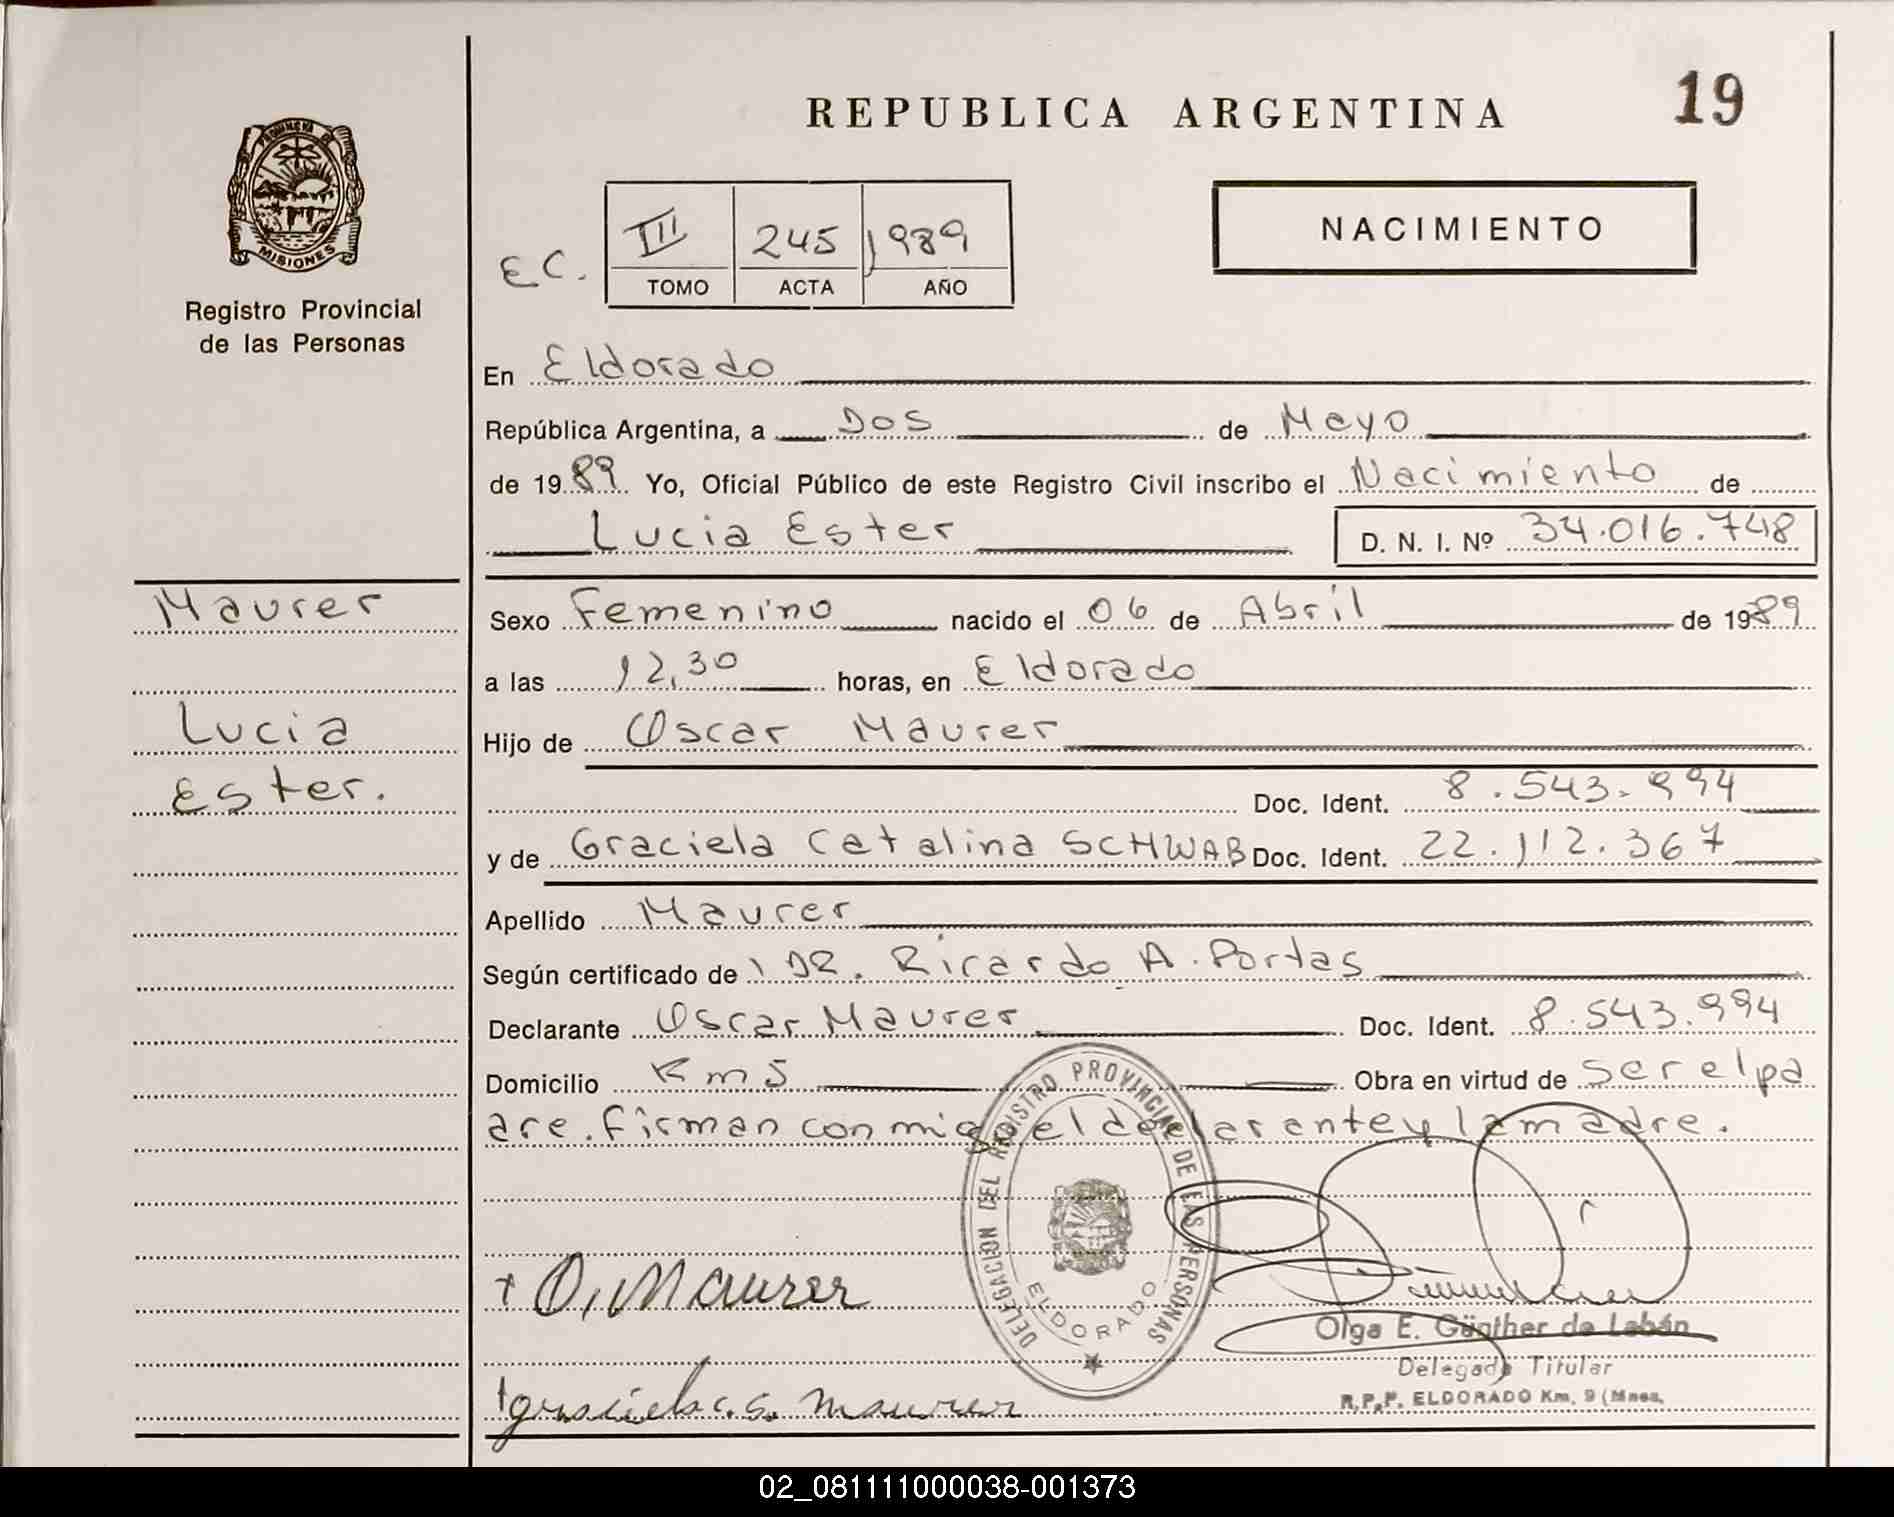 REPUBLICA ARGENTINA
19
PROVINCIA DE
MISIONES
Registro Provincial
de las Personas
NACIMIENTO
EC.
III 245 1989
TOMO ACTA AÑO
En Eldorado
República Argentina, a Dos de Mayo
de 1989 Yo, Oficial Público de este Registro Civil inscribo el Nacimiento de
Lucia Ester D. N. I. Nº 34.016.748
Maurer
Lucia
Ester.
Sexo Femenino nacido el 06 de Abril de 1989
a las 12,30 horas, en Eldorado
Hijo de Oscar Maurer
Doc. Ident. 8.543.994
y de Graciela Catalina SCHWAB Doc. Ident. 22.112.367
Apellido Maurer
Según certificado de DR. Ricardo A. Portas
Declarante Oscar Maurer Doc. Ident. 8.543.994
Domicilio Km 5 Obra en virtud de ser el pa
dre. Firman conmigo el declarante y la madre.
DELEGACION DEL REGISTRO PROVINCIAL DE LAS PERSONAS
ELDORADO
+ O. Maurer
Olga E. Günther de Labán
Delegada Titular
R.P.P. ELDORADO Km. 9 (Mnes.
+ graciela c. s. maurer
02_081111000038-001373